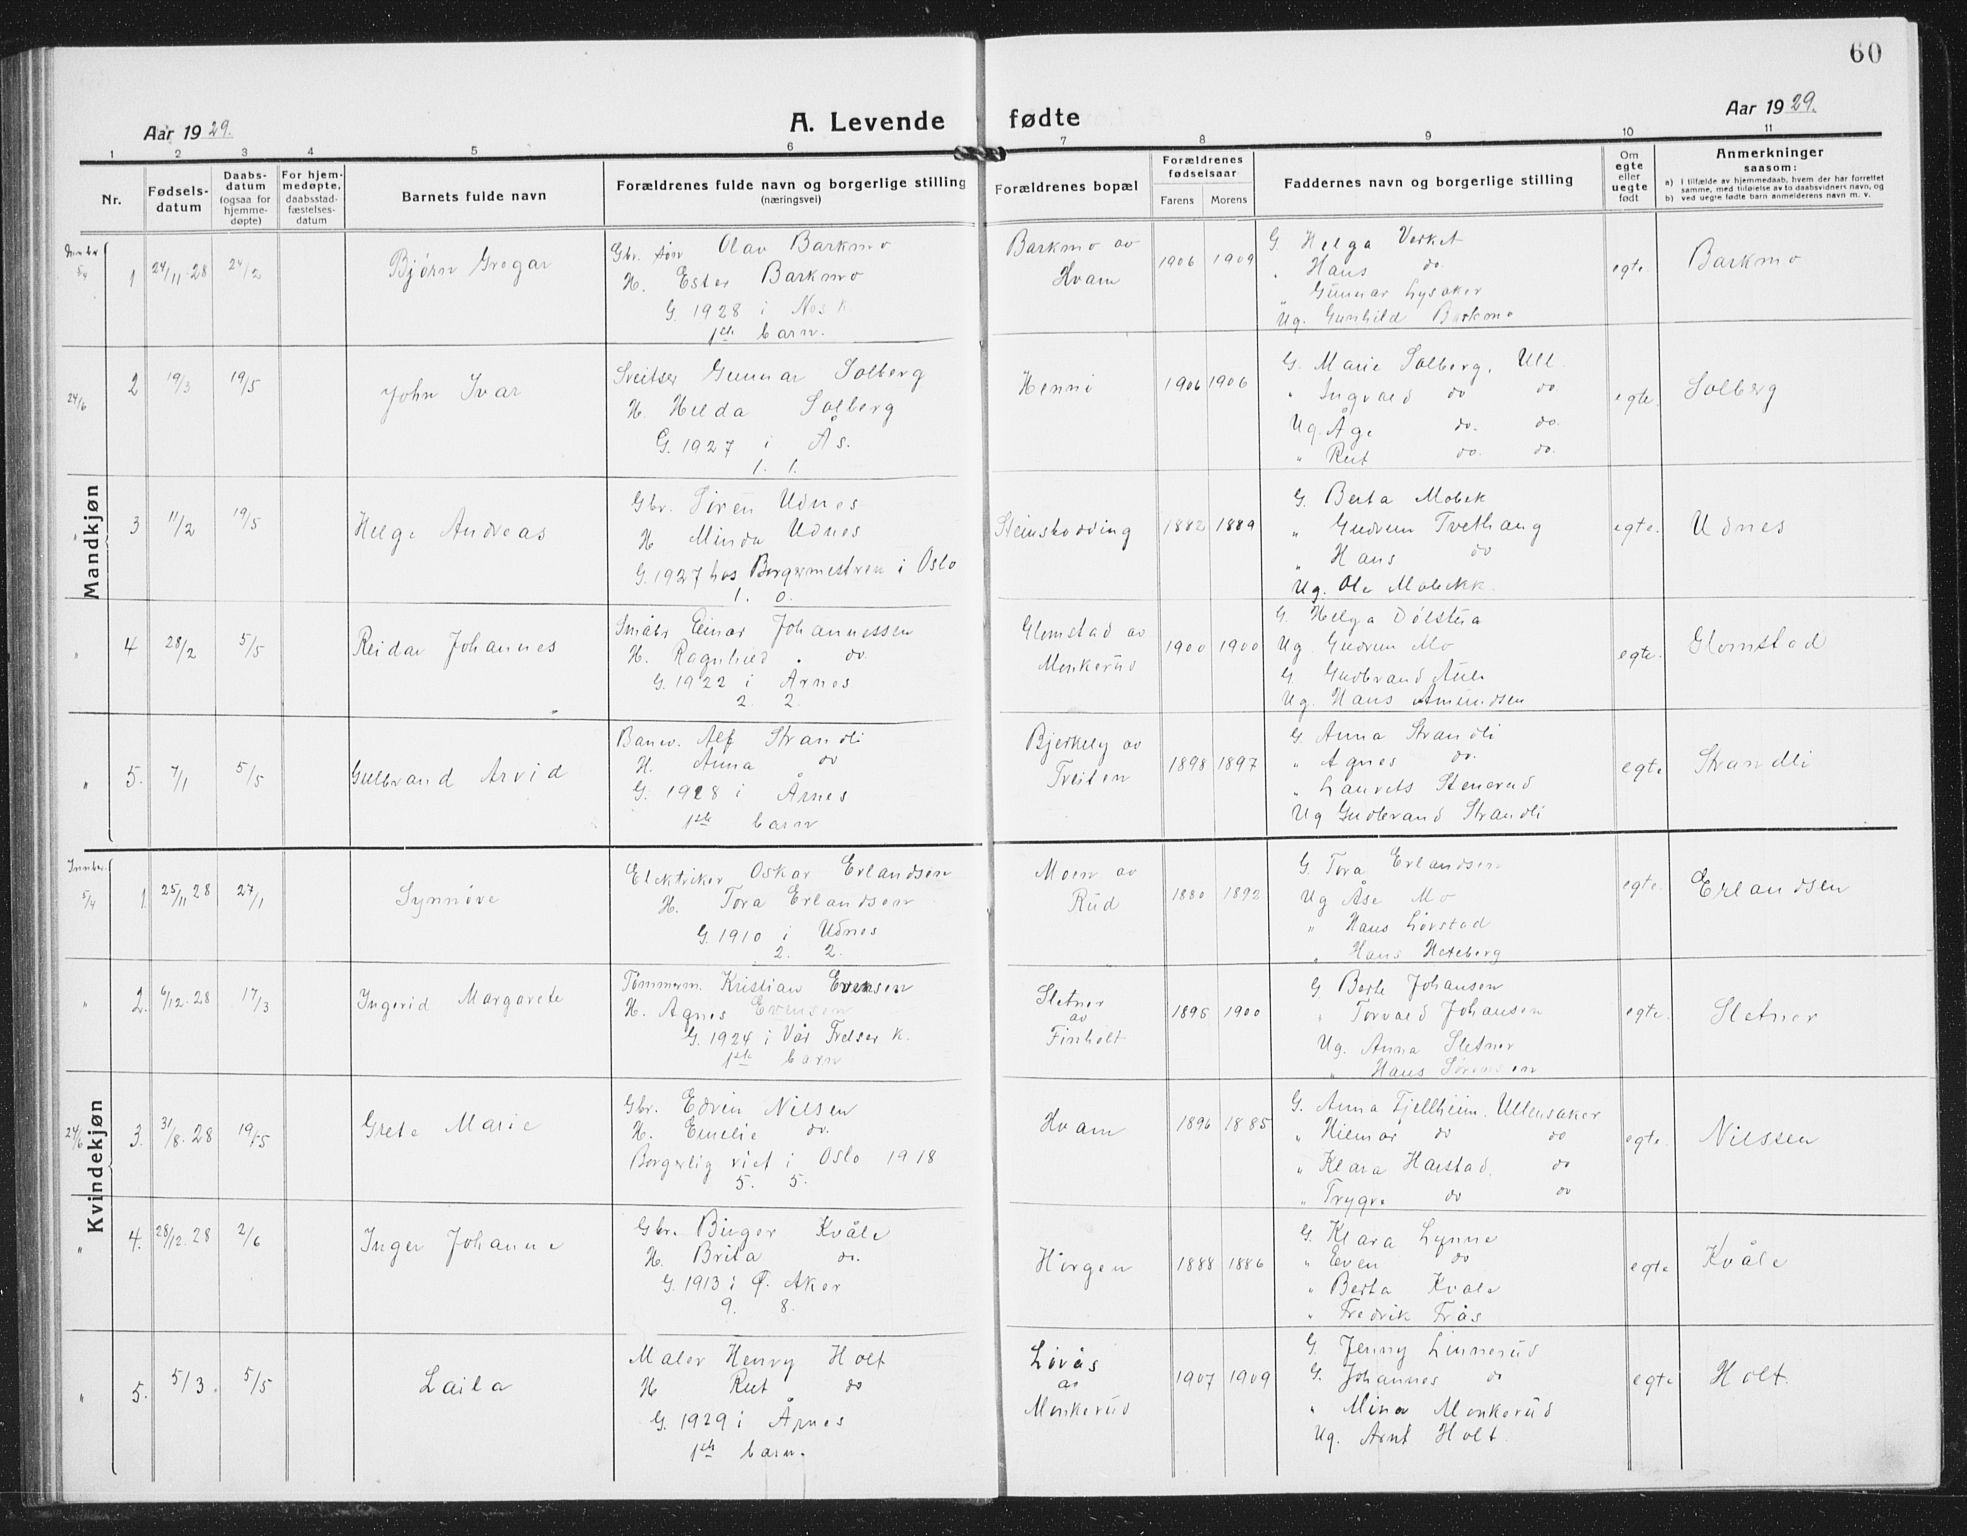 60
Aar 1929.
A. Levende fødte
Aar 1929.
1 2 3 4 5 6 7 8 9 10 11
Nr.
Fødsels-
datum
Daabs-
datum
(ogsaa for
hjemme-
døpte)
For hjem-
medøpte,
daabsstad-
fæstelses-
datum
Barnets fulde navn
Forældrenes fulde navn og borgerlige stilling
(næringsvei)
Forældrenes bopæl
Forældrenes
fødselsaar
Farens Morens
Faddernes navn og borgerlige stilling
Om
egte
eller
uegte
født
Anmerkninger
saasom:
a) i tilfælde av hjemmedaab, hvem der har forrettet
samme, med tilføielse av to daabsvidners navn, og
b) ved uegte fødte barn anmelderens navn m. v.
Mandkjøn
Innber.
5/4
1 24/11-28 24/2 Bjørn Gregar
Gbr. søn Olav Barkmo
H. Ester Barkmo
G 1928 i Nes k
1ste barn.
Barkmo av
Hvam
1906 1909
G. Helga Verket
" Hans do.
" Gunnar Lysaker
Ug. Gunhild Barkmo
egte. Barkmo
24/6 2 19/3 19/5 John Ivar
Sveitser Gunnar Solberg
H. Hilda Solberg
G. 1927 i Ås.
1. 1.
Henni
1906 1906
G. Marie Solberg, Ull.
" Ingvald do do
Ug. Åge do. do.
" Rut do. do.
egte. Solberg
" 3 11/2 19/5 Helge Andreas
Gbr. Søren Udnes
H Minda Udnes
G. 1927 hos Borgermestren i Oslo
1. 0.
Steinskodding
1882 1889
G. Berta Mobek
" Gudrun Tvethaug
" Hans do
Ug. Ole Mobekk.
egte. Udnes
" 4 28/2 5/5 Reidar Johannes
Småbr Einar Johannessen
H. Ragnhild do.
G. 1922 i Årnes
2. 2.
Glomstad av
Monkerud
1900 1900
G. Helga Dølstua
Ug. Gudrun Mo
G Gudbrand Auli
Ug. Hans Amundsen
egte. Glomstad
" 5. 7/1 5/5 Gulbrand Arvid
Banev. Alf Strandli
H. Anna do
G. 1928 i Årnes
1ste barn
Bjerkely av
Treiten
1898 1897
G. Anna Strandli
" Agnes do.
" Laurits Stenerud
Ug Gudbrand Strandli
egte Strandli
Kvindekjøn
Innber.
5/4
1. 25/11 28 27/1 Synnøve
Elektriker Oskar Erlandsen
H. Tora Erlandsen
G. 1910 i Udnes
2. 2.
Moen av
Rud
1880 1892
G. Tora Erlandsen
Ug Åse Mo
" Hans Løvstad
" Hans Hexeberg
egte. Erlandsen
" 2. 6/12-28 17/3 Ingerid Margarete
Tømmerm. Kristian Evensen
H. Agnes Evensen
G. 1924 i Vår Frelser k.
1ste barn
Sletner
av
Finholt
1895 1900
G Berte Johansen
" Torvald Johansen
Ug. Anna Sletner
" Hans Sørensen
egte. Sletner
24/6 3. 31/8-28 19/5 Grete Marie
Gbr. Edvin Nilsen
H. Emelie do.
Borgerlig viet i Oslo 1918
5. 5.
Hvam
1896 1885
G. Anna Fjellheim. Ullensaker
" Hilmar do do
" Klara Harstad. do
" Trygve do do
egte. Nilssen
" 4. 28/12-28 2/6 Inger Johanne
Gbr. Birger Kvåle
H. Brita do.
G. 1913 i Ø. Aker
9. 8.
Horgen
1888 1886
G. Klara Lynne
" Even do
" Berta Kvåle
" Fredrik Frås
egte Kvåle
" 5. 5/3. 5/5 Laila
Maler Henry Holt
H Rut do
G. 1929 i Årnes
1ste barn.
Løvås
av
Monkerud
1907 1909
G. Jenny Linnerud
G. Johannes do
" Mina Monkerud
Ug. Arnt Holt.
egte Holt.